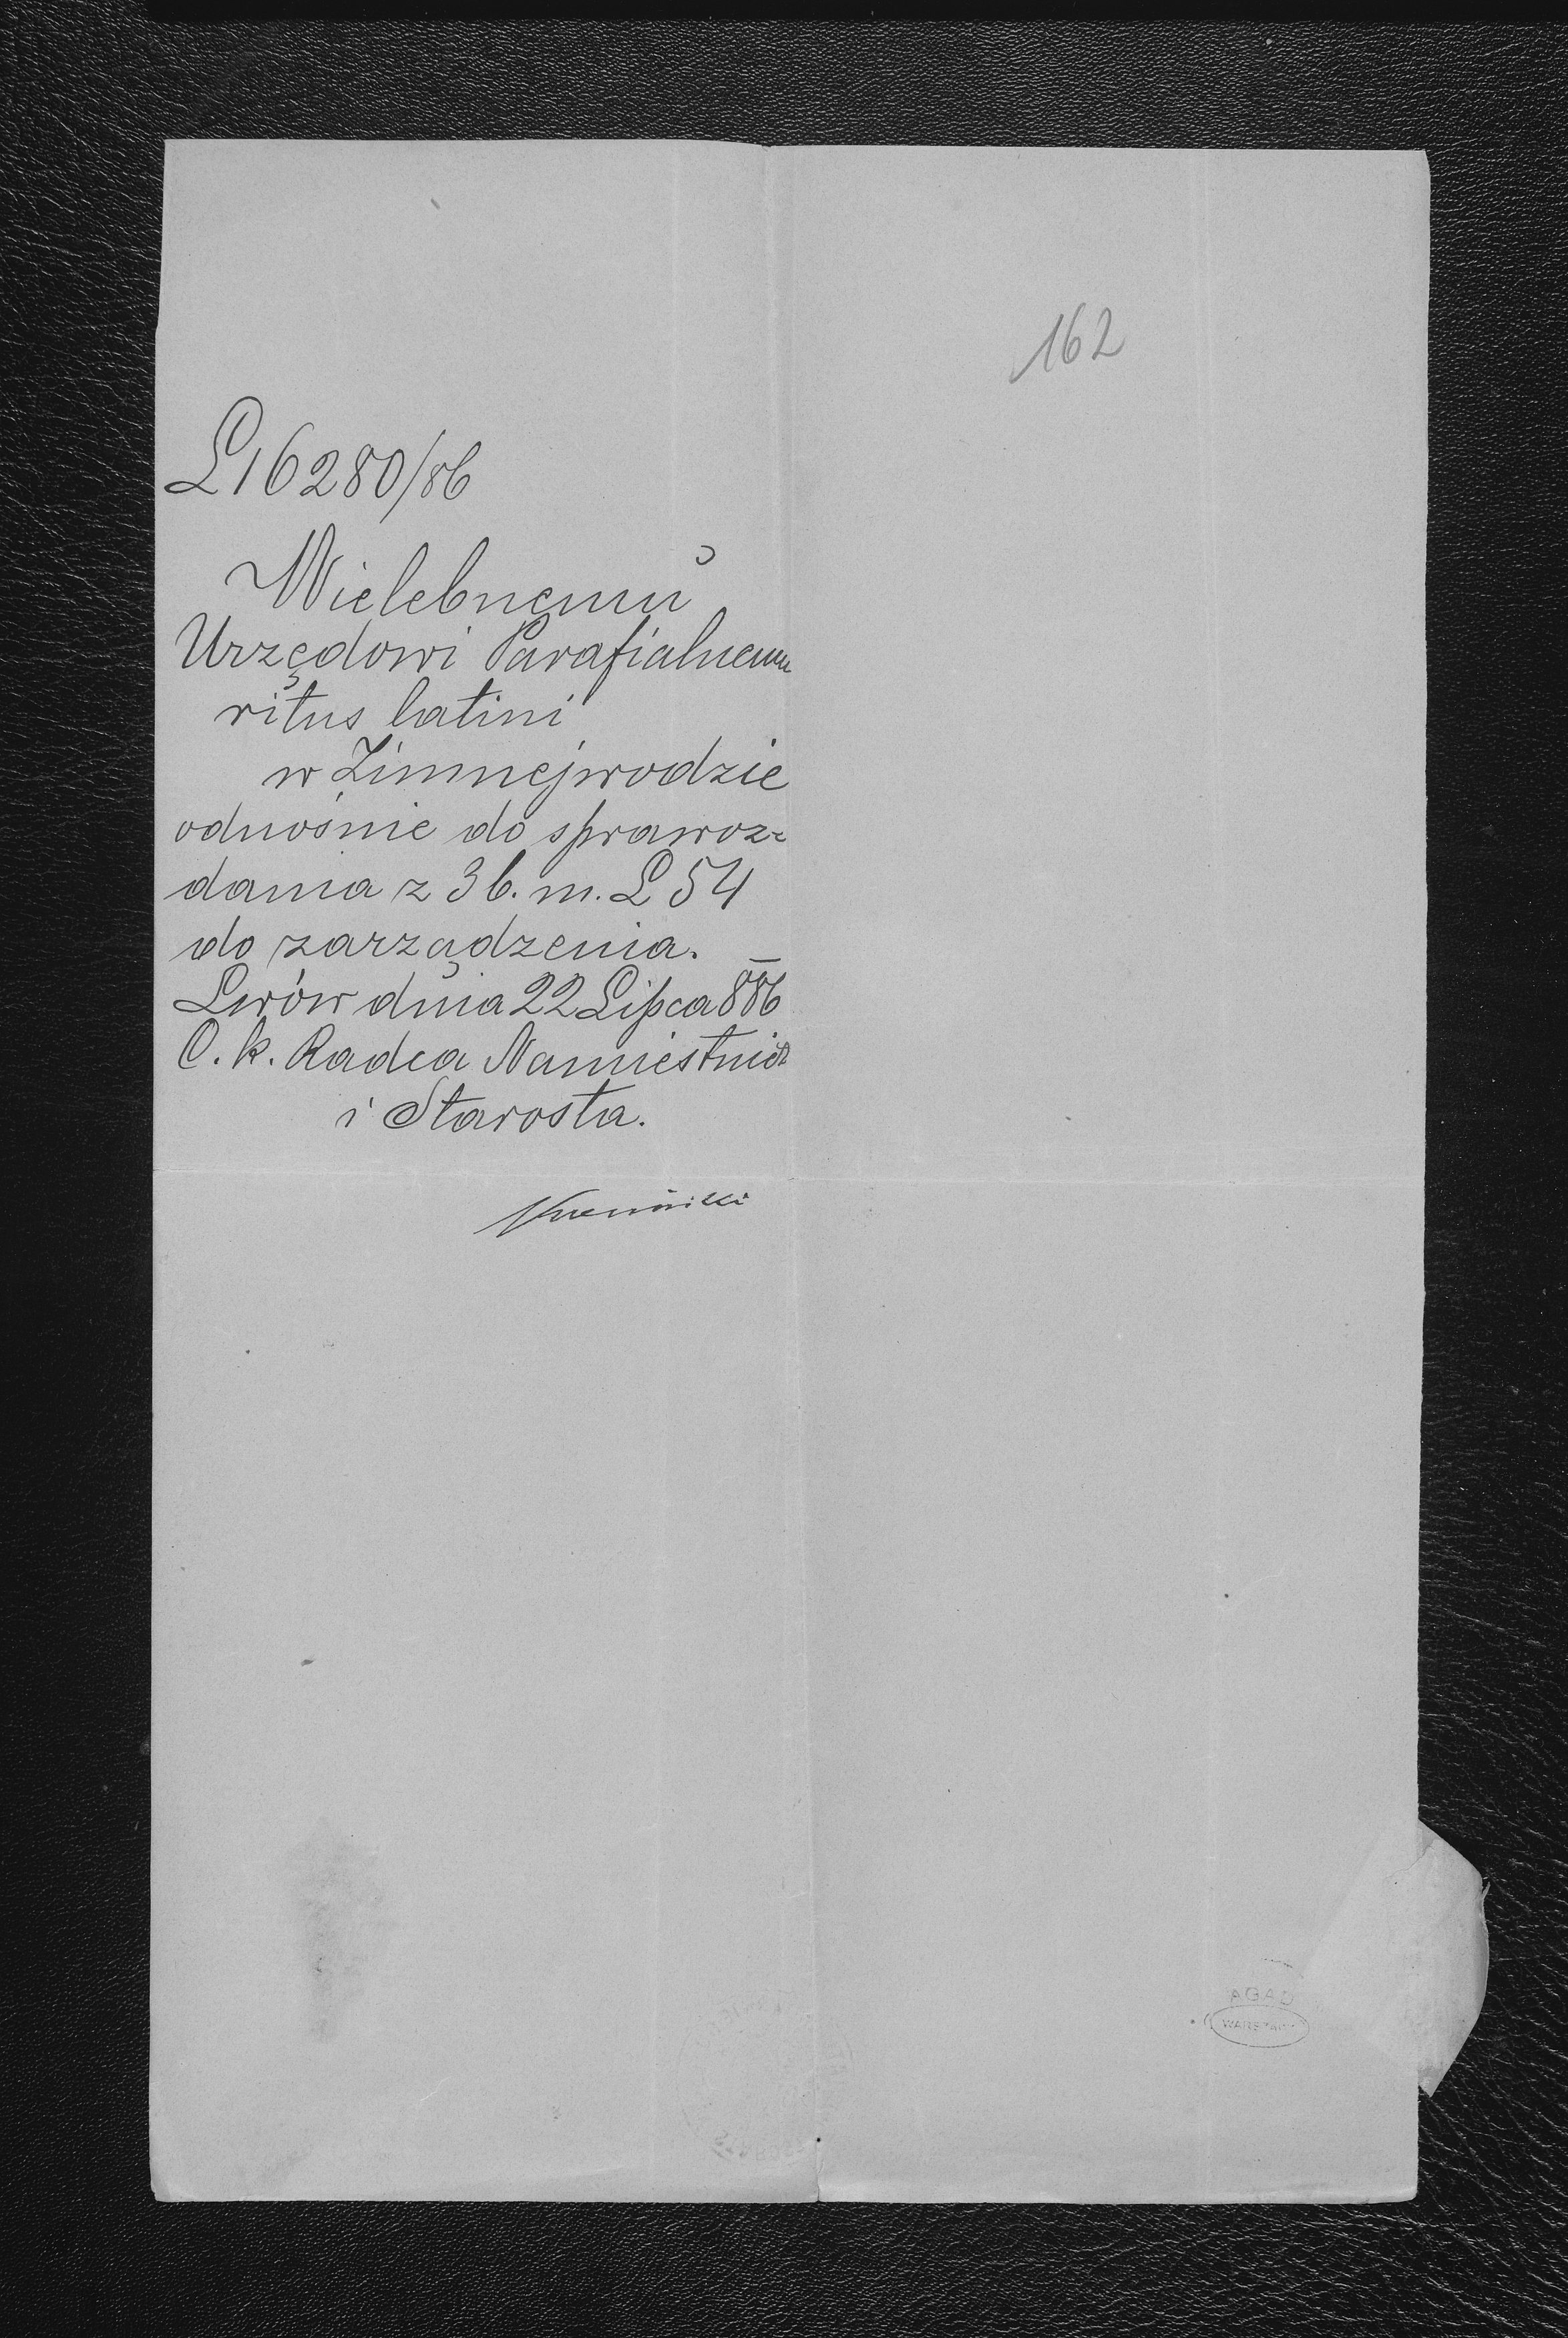 162
L 16280/86
Wielebnemu
Urzędowi Parafialnemu
ritus latini
w Zimnejwodzie
odnośnie do sprawoz-
dania z 3 b. m. L 54
do zarządzenia.
Lwów dnia 22 Lipca 886
C. k. Radca Namiestnict
i Starosta.
AGAD
WARSZAWA